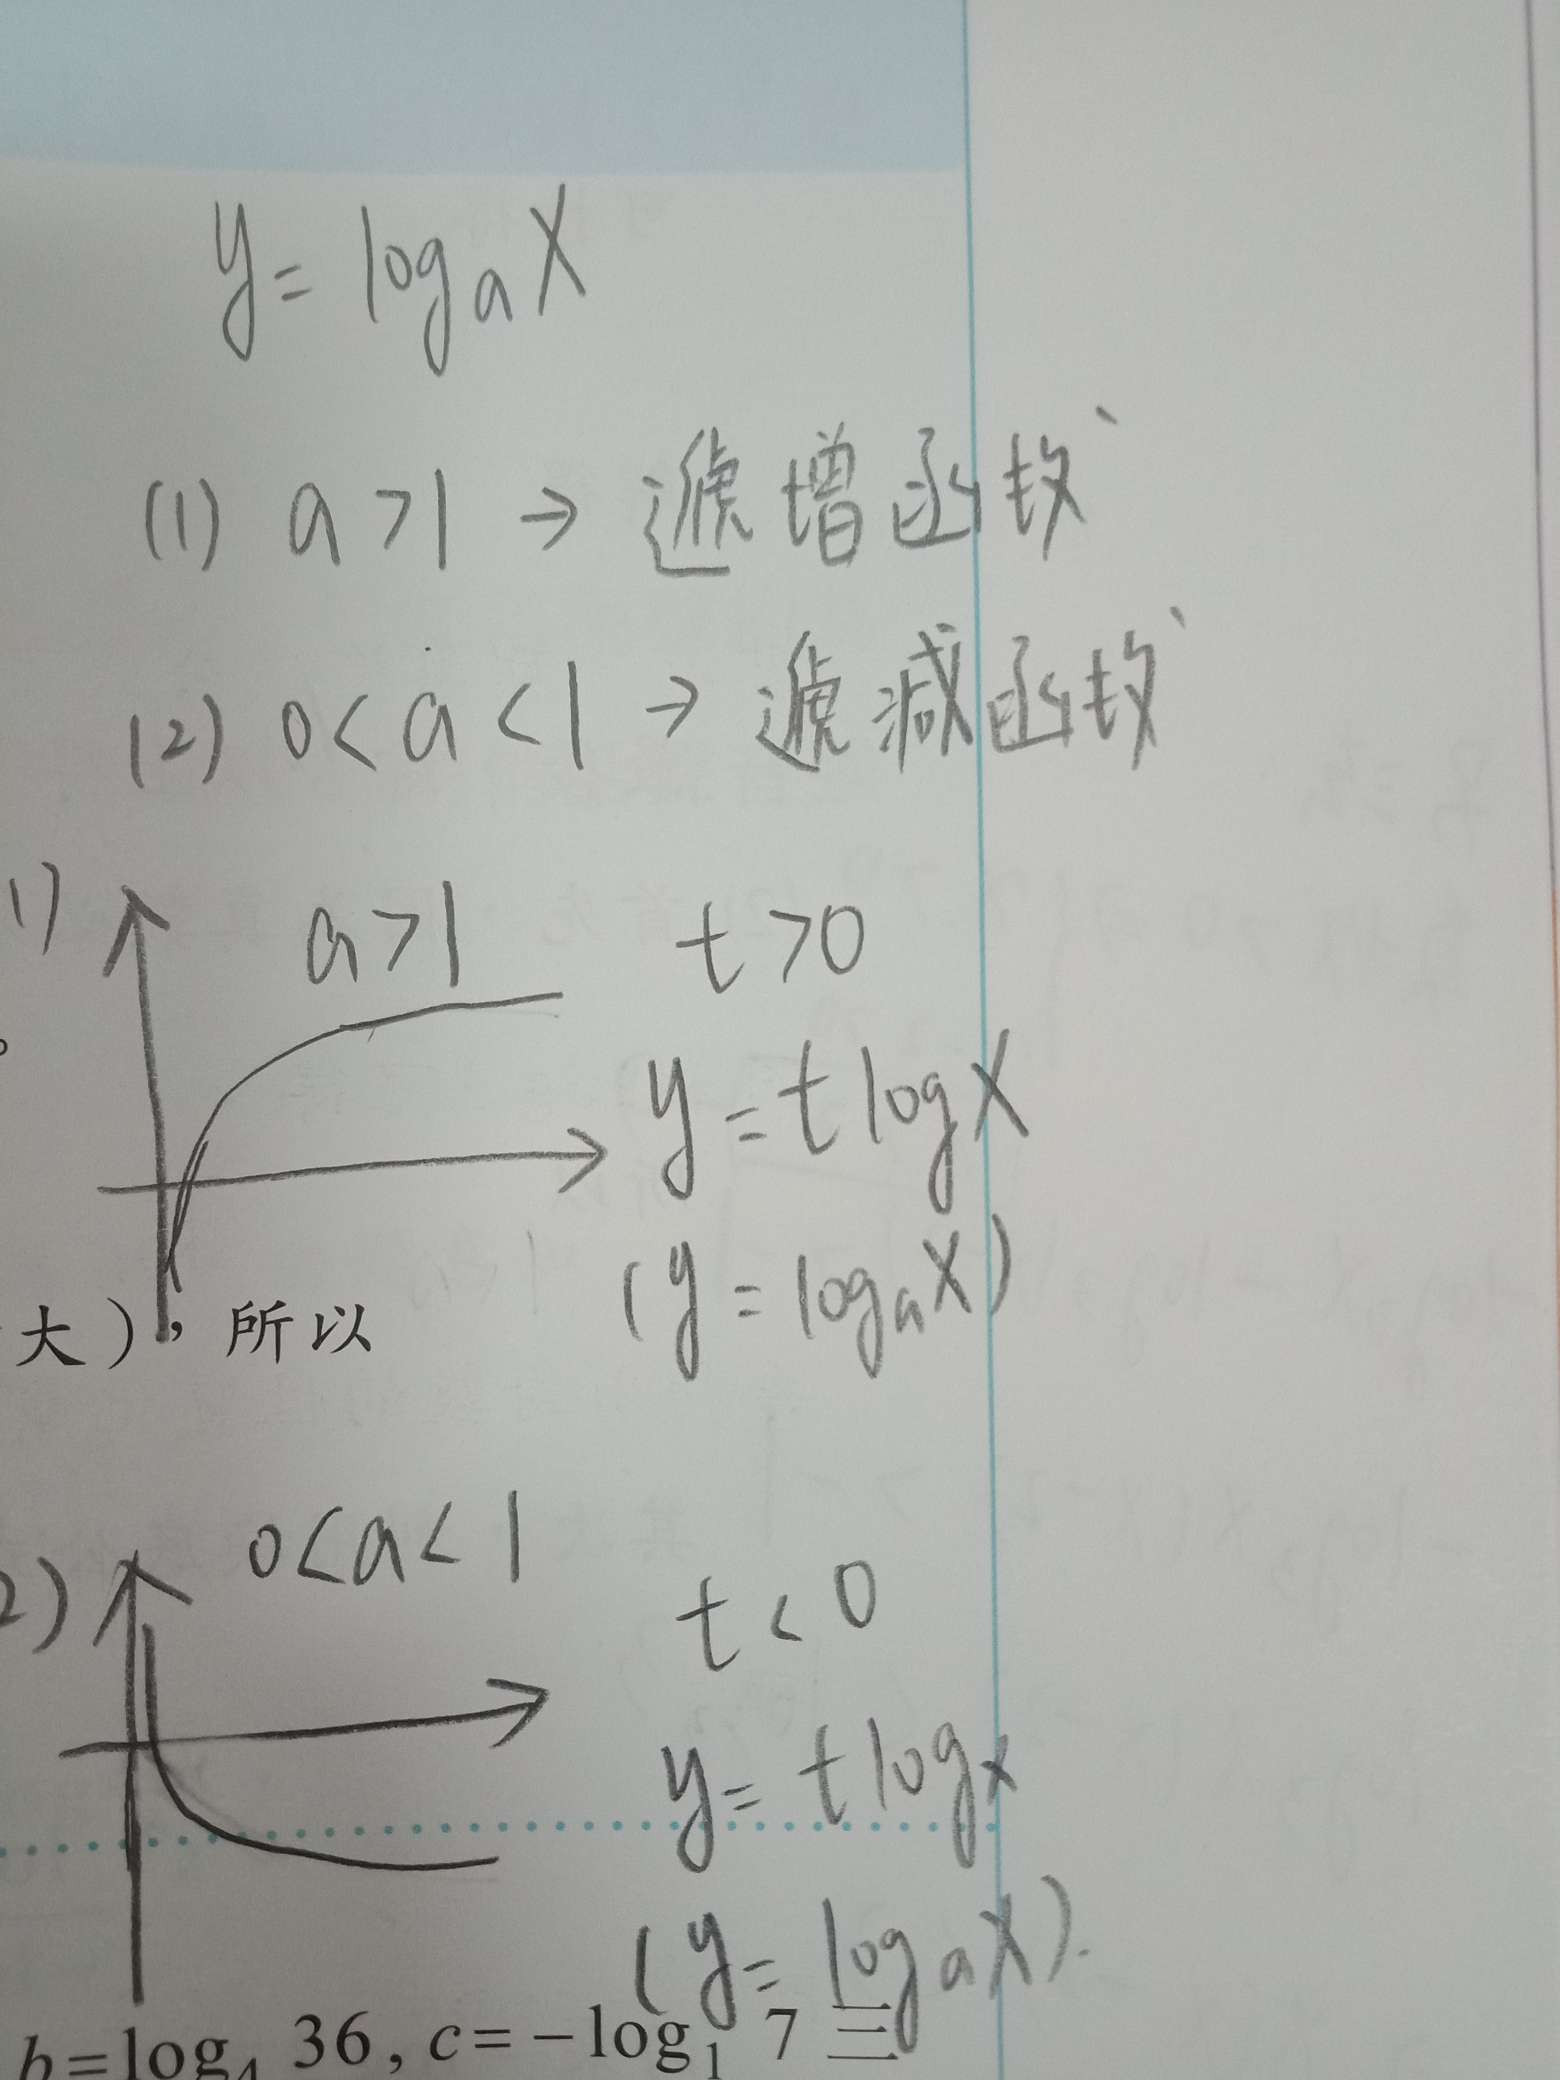 y = logₐ X
(1) a > 1 → 遞增函数
(2) 0 < a < 1 → 遞減函数
1)
a > 1
t > 0
。
y = t log X
(y = logₐ X)
大），所以
2)
0 < a < 1
t < 0
y = t log x
(y = logₐ X).
b=log₄ 36, c=−log₁ 7 三